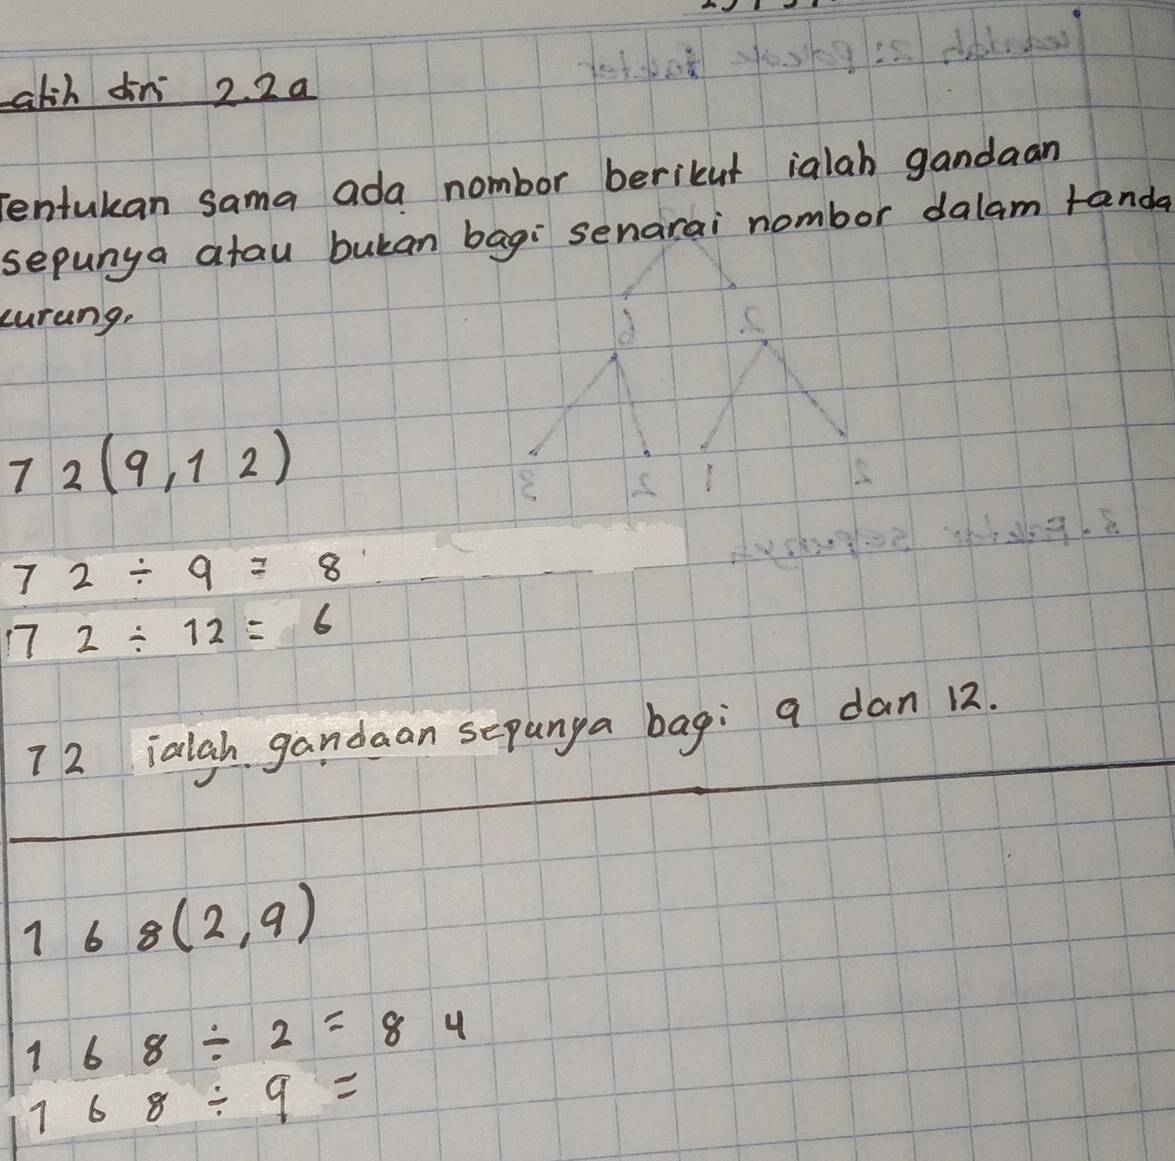 Latih diri 2.2a
Tentukan sama ada nombor berikut ialah gandaan
sepunya atau bukan bagi senarai nombor dalam tanda
kurung.
72(9,12)
72 ÷ 9 = 8
72 ÷ 12 = 6
72 ialah gandaan sepunya bagi 9 dan 12.
168(2,9)
168 ÷ 2 = 84
168 ÷ 9 =